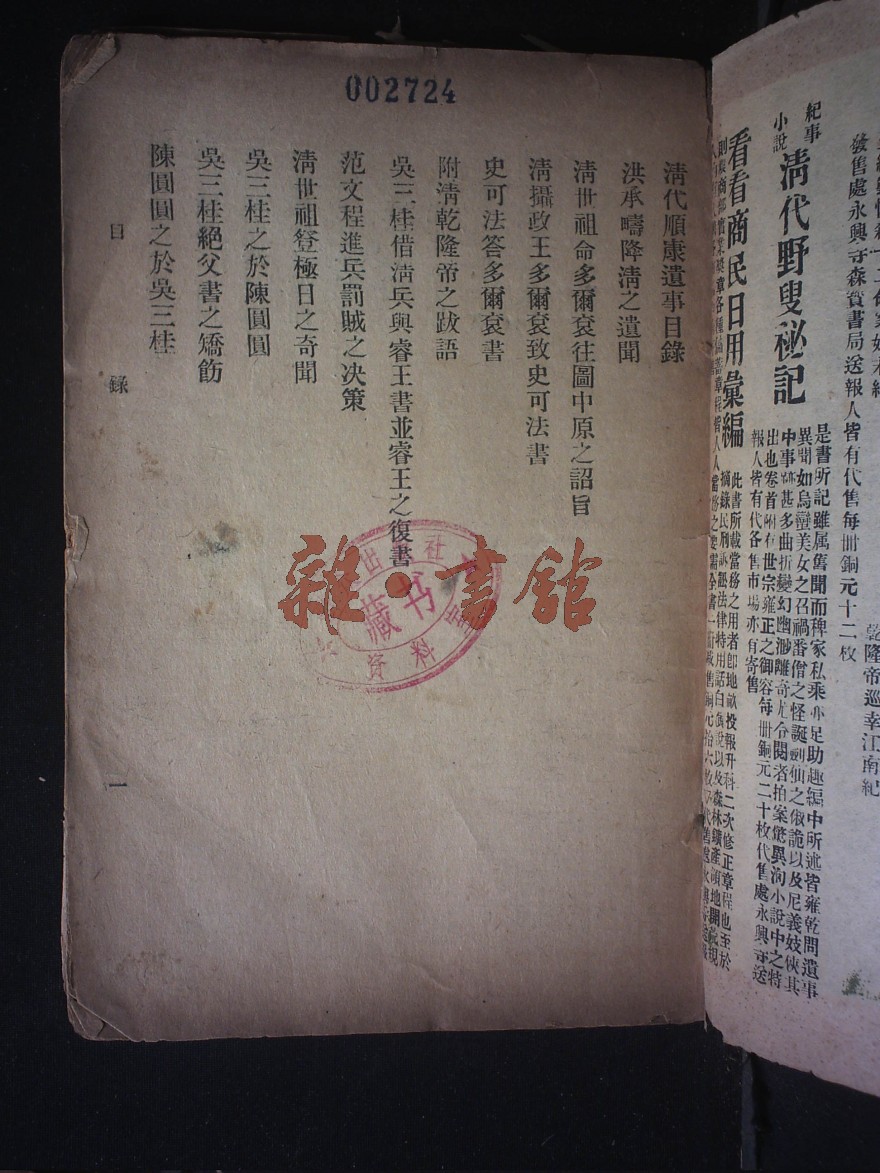 發售處永興寺森寶書局送報人皆有代售每冊銅元十二枚
乾隆帝巡幸江南紀
紀事
小說
清代野叟秘記
是書所記雖属舊聞而稗家私乘亦足助趣編中所述皆雍乾間遺事
異聞如烏蠻美女之召禍番僧之怪誕劍仙之俶詭以及尼義妓俠其
中事跡甚多曲折變幻幽渺離奇尤令閱者拍案驚異洵小說中之特
出也卷首附有世宗雍正之御容每冊銅元二十枚代售處永興寺送
報人皆有代各售市場亦有寄售
看看商民日用彙編
此書所載當務之用者卽地畝投報升科二次修正章程也至於
摘錄民刑訴訟法律特用話白
以及森林鑛產
002724
清代順康遺事目錄
洪承疇降清之遺聞
清世祖命多爾袞往圖中原之詔旨
清攝政王多爾袞致史可法書
史可法答多爾袞書
附清乾隆帝之跋語
吳三桂借清兵與睿王書並睿王之復書
范文程進兵罰賊之决策
清世祖登極日之奇聞
吳三桂之於陳圓圓
吳三桂絕父書之矯飭
陳圓圓之於吳三桂
目錄
一
出
社
藏书
資料
雜·書館